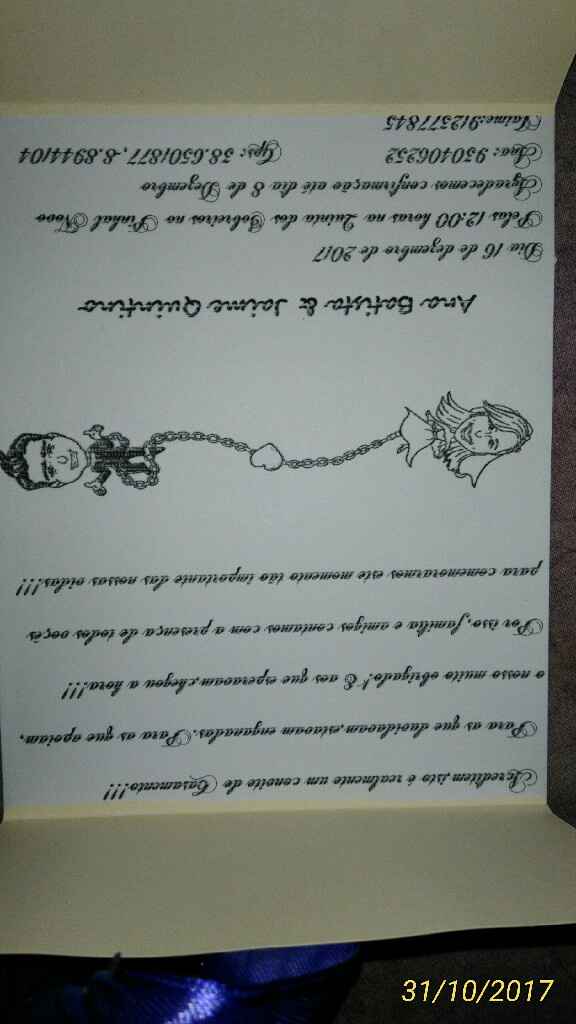 Acreditem,isto é realmente um convite de Casamento!!!
Para as que duvidavam,estavam enganadas. Para as que apoiam,
o nosso muito obrigado! E aos que esperavam,chegou a hora!!!
Por isso, família e amigos contamos com a presença de todos vocês
para comemorarmos este momento tão importante das nossas vidas!!!
Ana Batista & Jaime Quintino
Dia 16 de dezembro de 2017
Pelas 12:00 horas na Quinta dos Sobreiros no Pinhal Novo
Agradecemos confirmação até dia 8 de Dezembro
Ana: 930406252 Gps: 38.6501877,-8.8944104
Jaime:912577845
31/10/2017